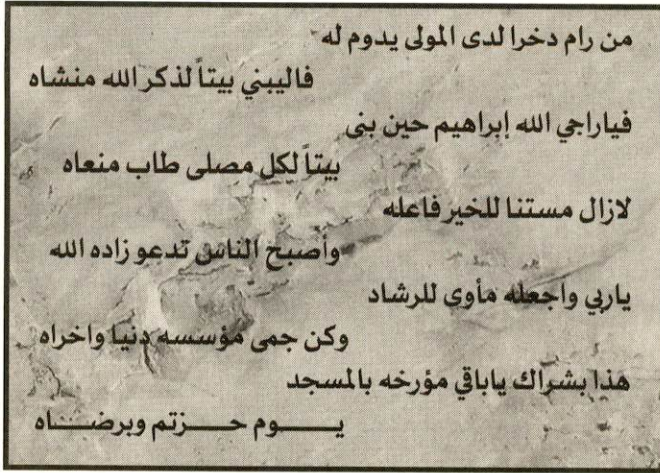 من رام دخرا لدى المولى يدوم له
فاليبني بيتاً لذكر الله منشاه
فياراجي الله إبراهيم حين بنى
بيتاً لكل مصلى طاب منعاه
لازال مستنا للخير فاعله
وأصبح الناس تدعو زاده الله
ياربي واجعله مأوى للرشاد
وكن جمى مؤسسه دنيا واخراه
هذا بشراك ياباقي مؤرخه بالمسجد
يــــوم حــــزتم وبرضــــاه